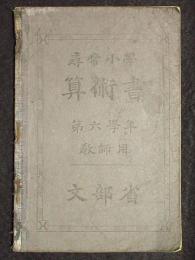 尋常小學
算術書
第六學年
教師用
文部省